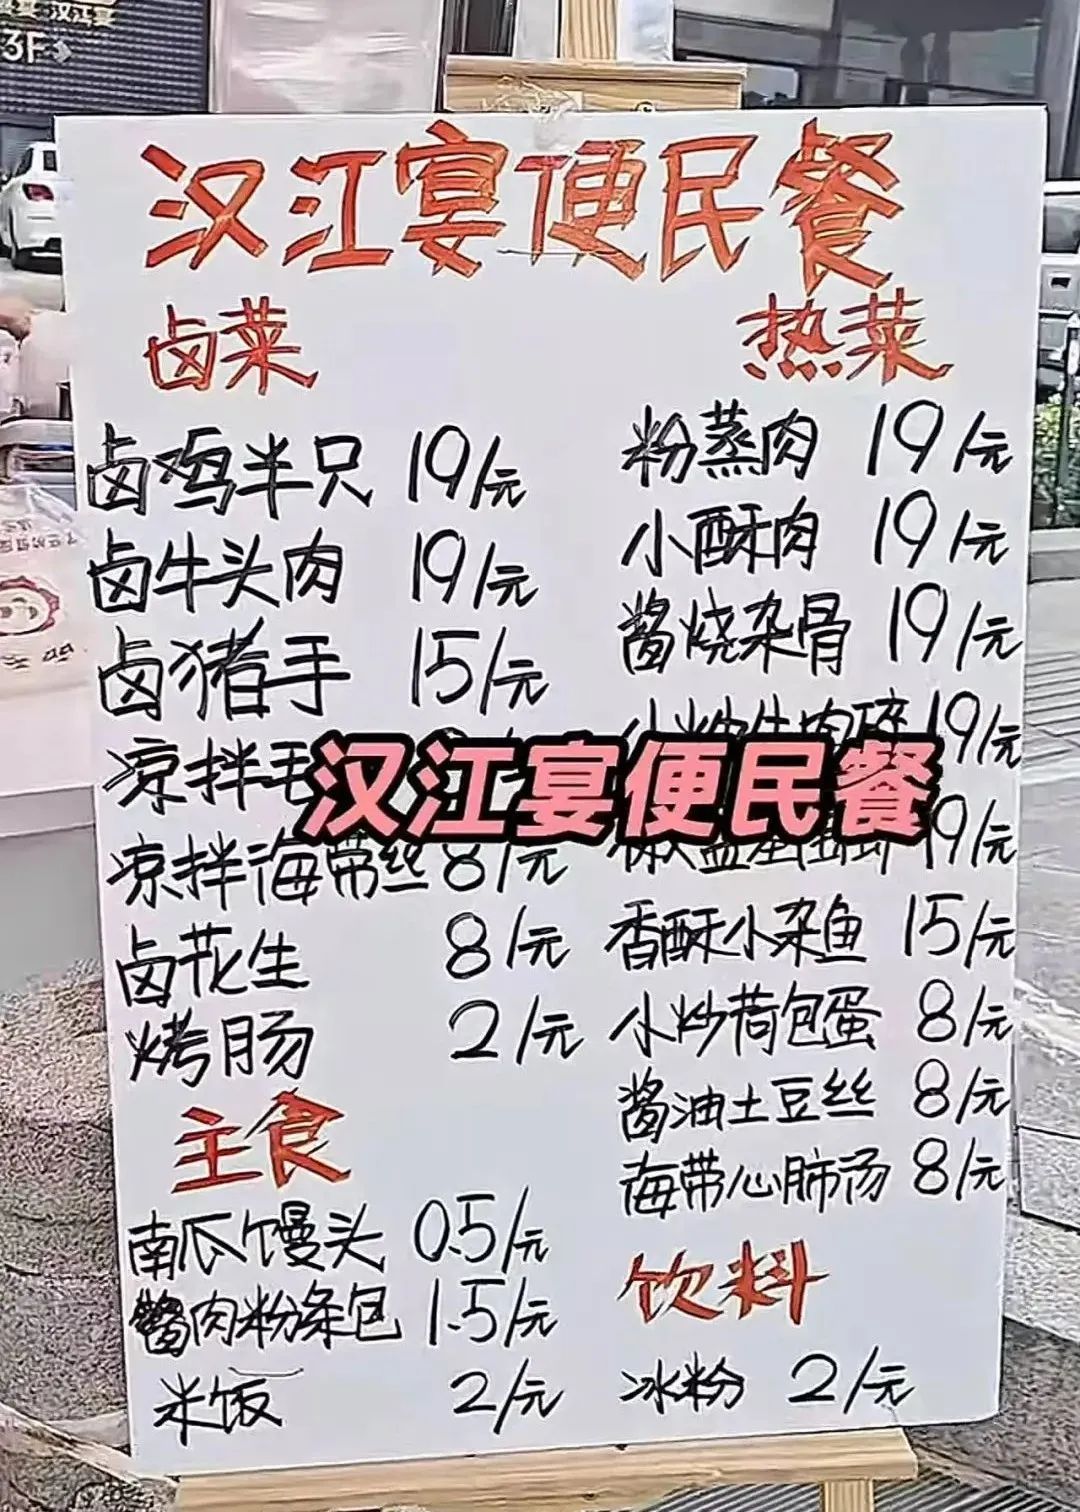 汉江宴
3F
汉江宴便民餐
卤菜
卤鸡半只 19/元
卤牛头肉 19/元
卤猪手 15/元
凉拌毛
凉拌海带丝 8/元
卤花生 8/元
烤肠 2/元
主食
南瓜馒头 0.5/元
酱肉粉条包 1.5/元
米饭 2/元
热菜
粉蒸肉 19/元
小酥肉 19/元
酱烧杂骨 19/元
小炒牛肉 19/元
19/元
香酥小杂鱼 15/元
小炒荷包蛋 8/元
酱油土豆丝 8/元
海带心肺汤 8/元
饮料
冰粉 2/元
汉江宴便民餐